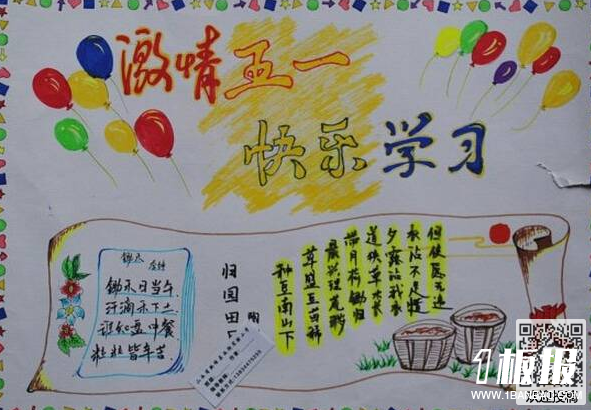 激情五一
快乐学习
锄禾
锄禾日当午
汗滴禾下土
谁知盘中餐
粒粒皆辛苦
归园田
陶
种豆南山下
草盛豆苗稀
晨兴理荒秽
带月荷锄归
道狭草木长
夕露沾我衣
衣沾不足惜
但使愿无违
1板报
WWW.1BANBAO.COM